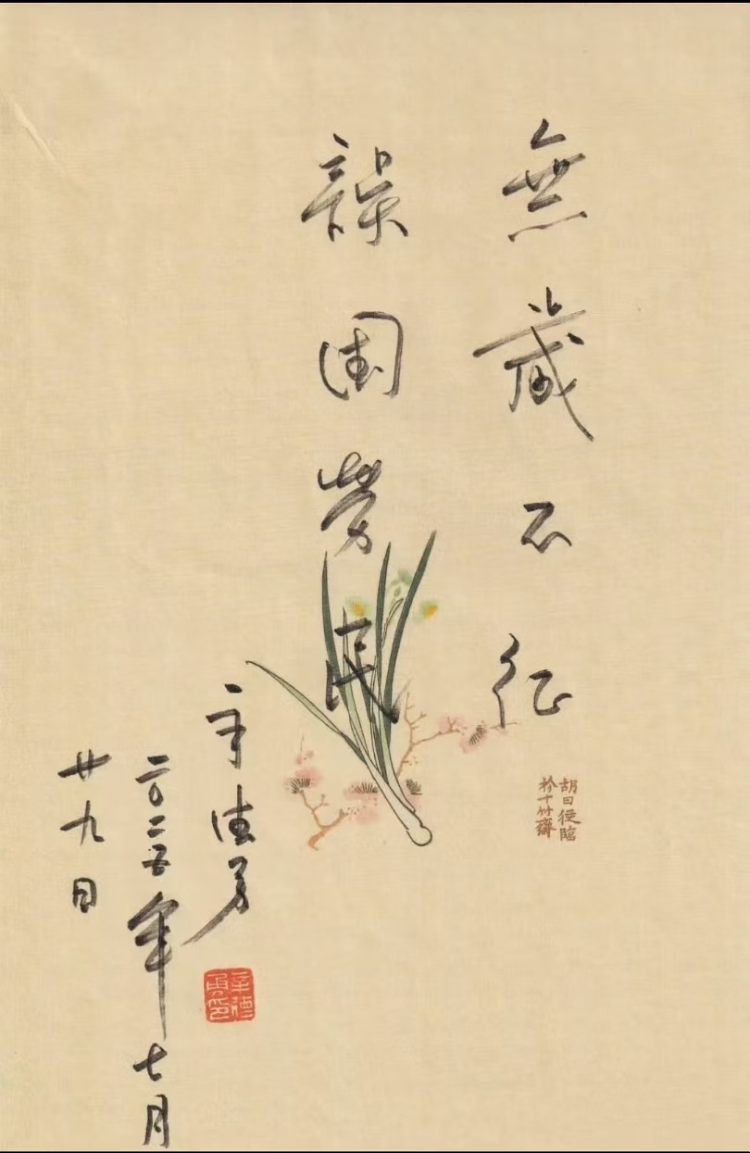 無歲不征
誤國勞民
胡曰從臨
於十竹齋
辛德勇
辛德勇印
二〇二五年七月
廿九日